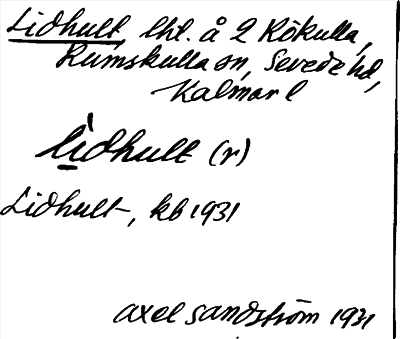 Lidhult, lht. å 2 Rökulla,
Rumskulla sn, Sevede hd,
Kalmar l
lìdhult (r)
Lidhult, kb 1931
Axel Sandström 1931